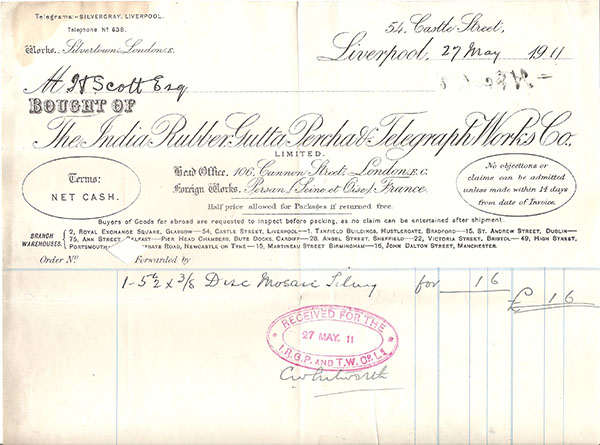 Telegrams:-SILVERGRAY, LIVERPOOL.
Telephone No 638.
Works. Silvertown. London. E.
54, Castle Street,
Liverpool, 27 May 1911
H Scott Esq
BOUGHT OF
The India Rubber, Gutta Percha & Telegraph Works Co.
LIMITED.
Terms:
NET CASH.
Head Office, 106, Cannon Street, London, E.C.
Foreign Works, Persan, (Seine et Oise) France.
Half price allowed for Packages if returned free.
No objections or
claims can be admitted
unless made within 14 days
from date of Invoice.
Buyers of Goods for abroad are requested to inspect before packing, as no claim can be entertained after shipment.
BRANCH WAREHOUSES.
2, ROYAL EXCHANGE SQUARE, GLASGOW—54, CASTLE STREET, LIVERPOOL—1, TANFIELD BUILDINGS, HUSTLERGATE, BRADFORD—15, ST. ANDREW STREET, DUBLIN—
75, ANN STREET, BELFAST—PIER HEAD CHAMBERS, BUTE DOCKS, CARDIFF—28, ANGEL STREET, SHEFFIELD—22, VICTORIA STREET, BRISTOL—49, HIGH STREET,
PORTSMOUTH ROAD, NEWCASTLE ON TYNE—15, MARTINEAU STREET BIRMINGHAM—16, JOHN DALTON STREET, MANCHESTER.
Order No Forwarded by
1-5½ x 3/8 Disc Mosaic Tiling for 16
£ 16
RECEIVED FOR THE
27 MAY. 11
I.R.G.P. AND T.W. Co. Ld
C Whitworth